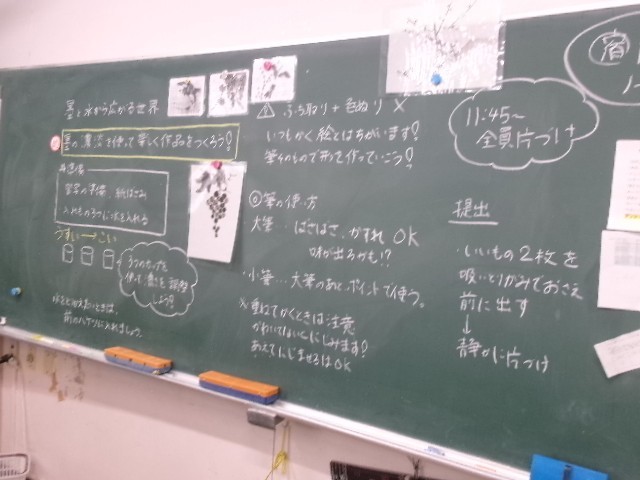 墨と水から広がる世界
め 墨の濃淡を使って楽しく作品をつくろう!
準備
習字の準備、紙ばさみ
入れもの3つに水を入れる
うすい→こい
3つのカップを
使って墨を調整
しよう!
水をとりかえたいときは、
前のバケツに入れましょう。
⚠ ふち取り+色ぬり ×
いつもかく絵とはちがいます!
筆そのもので形を作っていこう!
◎筆の使い方
大筆…ばさばさ、かすれ OK
味が出るかも!?
小筆…大筆のあと、ポイントで使う。
※重ねてかくときは注意
かわいてないとにじみます!
あえてにじませるはOK
11:45~
全員片づけ
提出
・いいもの2枚を
吸いとりがみでおさえ
前に出す
↓
静かに片づけ
宿